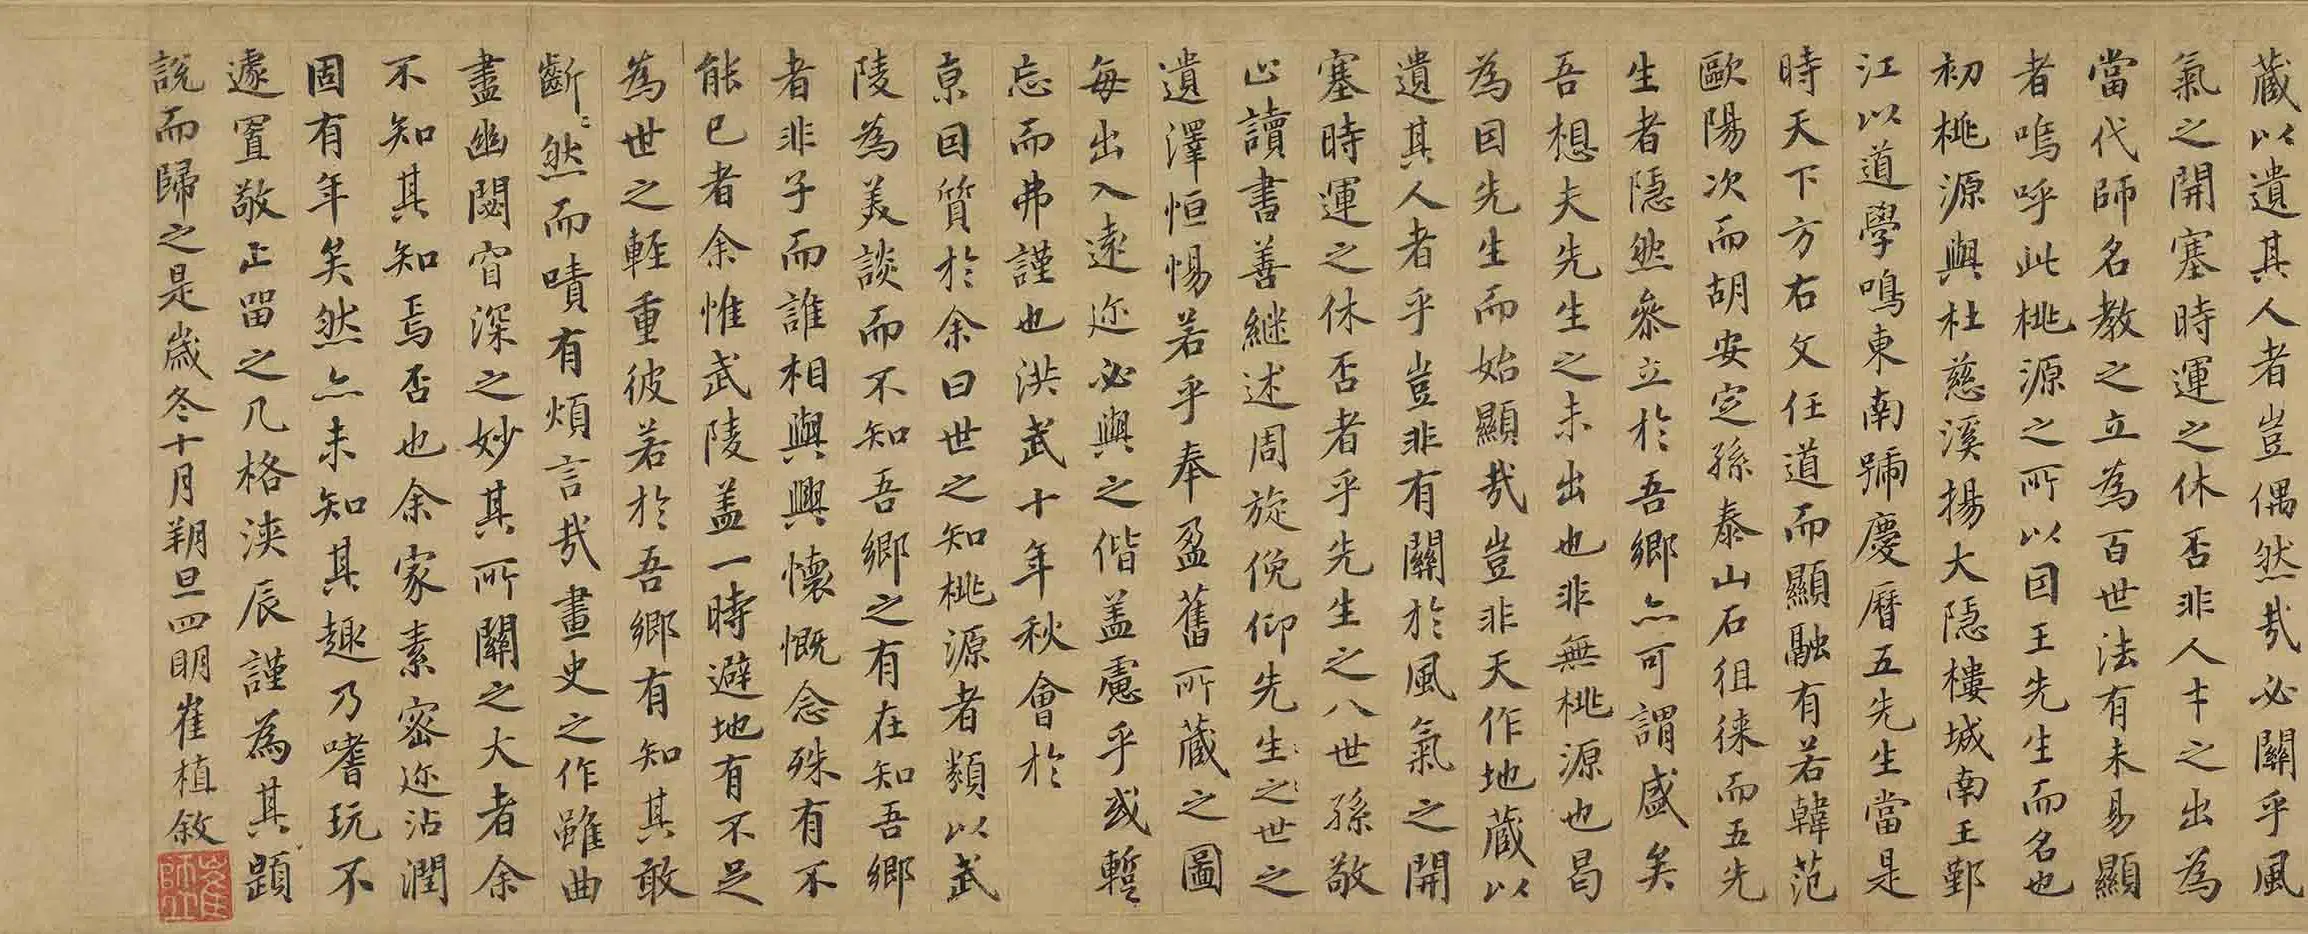 藏以遺其人者豈偶然哉必關乎風
氣之開塞時運之休否非人才之出為
當代師名教之立為百世法有未易顯
者嗚呼此桃源之所以因王先生而名也
初桃源與杜慈溪楊大隱樓城南王鄞
江以道學鳴東南號慶曆五先生當是
時天下方右文任道而顯融有若韓范
歐陽次而胡安定孫泰山石徂徠而五先
生者隱然參立於吾鄉亦可謂盛矣
吾想夫先生之未出也非無桃源也曷
為因先生而始顯哉豈非天作地藏以
遺其人者乎豈非有關於風氣之開
塞時運之休否者乎先生之八世孫敬
止讀書善繼述周旋俛仰先生之世之
遺澤恒惕若乎奉盈舊所藏之圖
每出入遠迩必與之偕盖慮乎或蹔
忘而弗謹也洪武十年秋會於
京因質於余曰世之知桃源者類以武
陵為美談而不知吾鄉之有在知吾鄉
者非子而誰相與興懷慨念殊有不
能已者余惟武陵盖一時避地有不足
為世之輕重彼若於吾鄉有知其敢
齗〻然而嘖有煩言哉畫史之作雖曲
盡幽閟窅深之妙其所關之大者余
不知其知焉否也余家素密迩沾潤
固有年矣然亦未知其趣乃嗜玩不
遽置敬止留之几格浹辰謹為其題
說而歸之是歲冬十月朔旦四明崔植敘